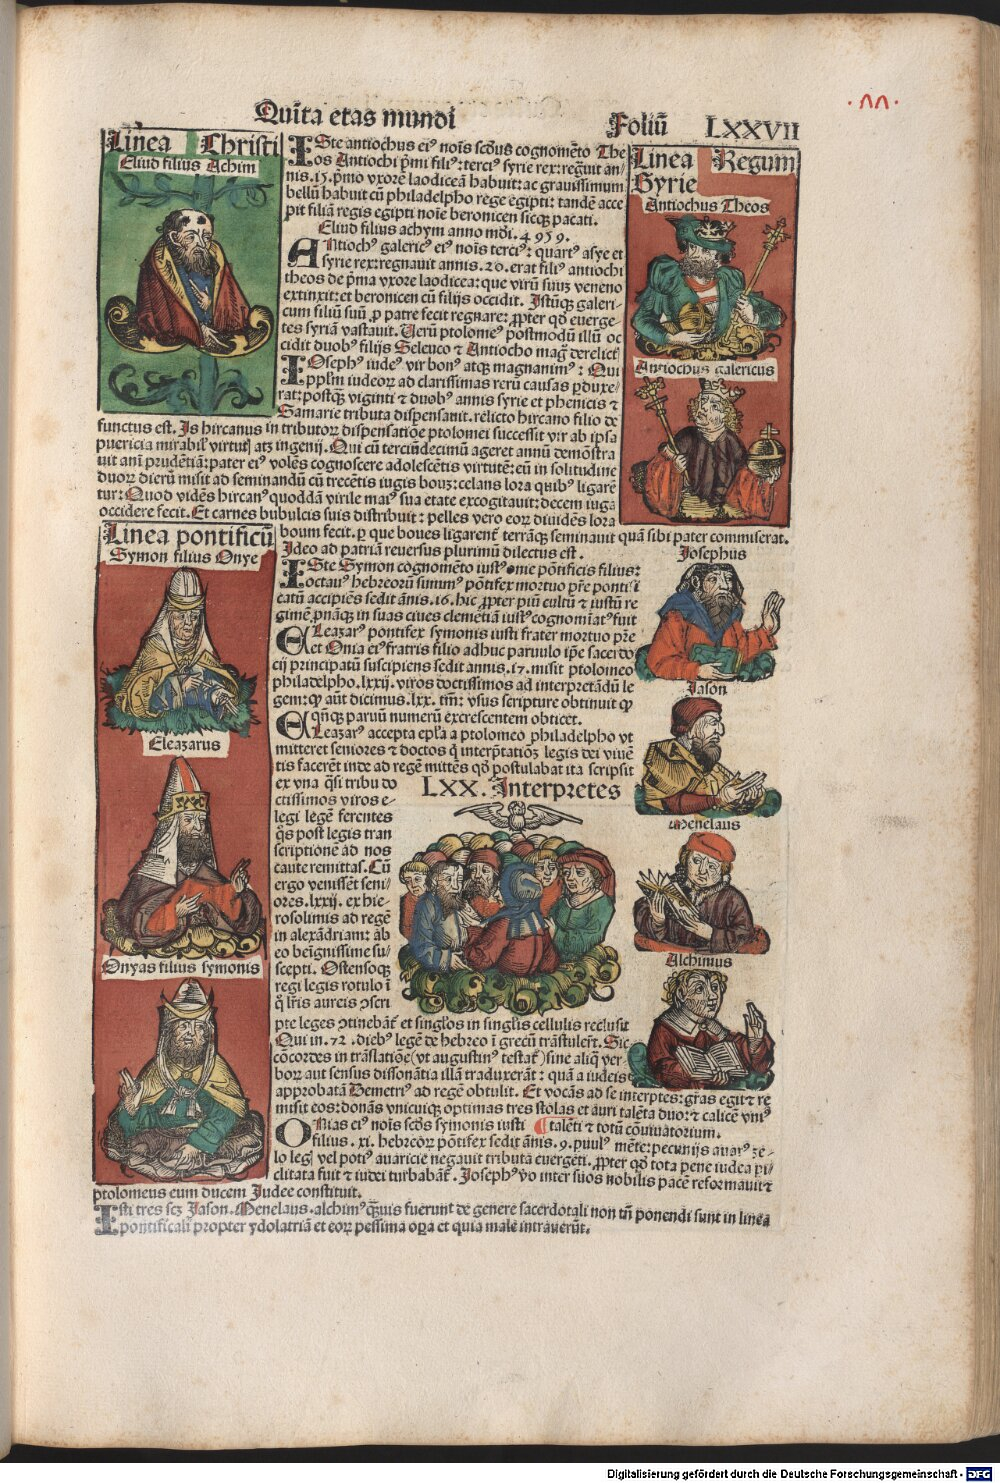 Quīta etas mundi
Foliū LXXVII
Linea Christi
Eliud filius Achim
ISte antiochus ei⁹ noīs scd̄us cognomēto The
os Antiochi p̄mi fili⁹: terci⁹ syrie rex: regͣuit an-
nis.15. p̄mio vxorē laodiceā habuit: ac grauissimum
bellū habuit cū philadelpho rege egipti: tandē acce
pit filiā regis egipti noīe beronicen sicq; pacati.
Eliud filius achym anno mōi. 4959.
ANtioch⁹ galeric⁹ ei⁹ noīs terci⁹: quart⁹ asye et
syrie rex: regnauit annis.20. erat fili⁹ antiochi
theos de p̄ma vxore laodicea: que virū suuʒ veneno
extinxit: et beronicen cū filijs occidit. Istūq; galeri-
cum filiū suū ꝓ patre fecit regnare: ꝓpter qd̄ euerge-
tes syriā vastauit. Verū ptolome⁹ postmodū illū oc
cidit duob⁹ filijs Seleuco ⁊ Antiocho mag͛ derelict͛
IOseph⁹ iude⁹ vir bon⁹ atq; magnanim⁹: Qui
ppl̄m iudeoꝝ ad clarissimas rerū causas ꝑduxe-
rat: postq̄ʒ viginti ⁊ duob⁹ annis syrie et phenicis ⁊
Samarie tributa dispensauit. relicto hircano filio de
functus est. Is hircanus in tributoꝝ dispensatiōe ptolomei successit vir ab ipsa
puericia mirabil͛ virtut͛ atʒ ingenij. Qui cū terciūdecimū ageret annū demōstra
uit ani prudētiā: pater ei⁹ volēs cognoscere adolescētis virtutē: eū in solitudine
duoꝝ dierū misit ad seminandū cū trecētis iugis bouʒ: celans lora quib⁹ ligarē
tur: Quod vidēs hircan⁹ quoddā virile mai⁹ sua etate excogitauit: decem iuga
occidere fecit. Et carnes bubulcis suis distribuit: pelles vero eoꝝ diuidēs lora
boum fecit. ꝑ que boues ligarent͛ terrāq; seminauit quā sibi pater commiserat.
Ideo ad patriā reuersus plurimū dilectus est.
Linea Regum
Syrie
Antiochus Theos
Antiochus galericus
Linea pontificū
Symon filius Onye
Eleazarus
Onyas filius symonis
ISte Symon cognomēto iust⁹ onie pōtificis filius:
octau⁹ hebreorū summ⁹ pōtifex mortuo pr̄e ponti⁹i
catū accipiēs sedit ānis.16. hic ꝓpter piū cultū ⁊ iustū re
gimē ꝓnāq; in suas ciues clemētiā iust⁹ cognoīat⁹ fuit
ELeazar⁹ pontifex symonis iusti frater mortuo pr̄e
et Onia ei⁹ fratris filio adhuc paruulo ip̄e sacerdo
cij principatū suscipiens sedit annis.17. misit ptolomeo
philadelpho.lxxij. viros doctissimos ad interpretādū le
gem: q̄ aūt dicimus.lxx. tm̄: vsus scripture obtinuit qͥ
qn̄q; paruū numerū excrescentem obticet.
ELeazar⁹ accepta epl̄a a ptolomeo philadelpho vt
mitteret seniores ⁊ doctos q̄ interp̄tatiōʒ legis dei viuē
tis facerēt inde ad regē mittēs qd̄ postulabat ita scripsit
ex vna q̄si tribu do
ctissimos viros e-
legi legē ferentes
q̄s post legis tran
scriptionē ad nos
caute remittas. Cū
ergo venissēt seni-
ores.lxxij. ex hie-
rosolimis ad regē
in alexādriam: ab
eo beīgnissime su-
scepti. Ostensoq;
regi legis rotulo ī
q̄ l̄ris aureis ꝯscri
LXX. Interpretes
pte leges ꝯtinebāt͛ et singl̄os in singl̄is cellulis reclusit
Qui in.72. dieb⁹ legē de hebreo ī grecū trāstuler̄t. Sic
cōcordes in trāslatiōe (vt augustin⁹ testat͛) sine aliq̄ ver-
boꝝ aut sensus dissonātia illā traduxerāt: quā a iudeis
approbatā Demetri⁹ ad regē obtulit. Et vocās ad se interp̄tes: gr̄as egit ⁊ re
misit eos: donās vnicuiq; optimas tres stolas et auri talēta duo: ⁊ calicē vni⁹
talēti ⁊ totū cōuiuatorium.
ONias ei⁹ noīs scd̄s symonis iusti
filius. xi. hebreoꝝ pōtifex sedit ānis.9. puul⁹ mēte: pecunijs auar⁹ ze-
lo leg͛ vel poti⁹ avaricie negauit tributa euergēti. ꝓpter qd̄ tota pene iudea pi-
clitata fuit ⁊ iudei turbabāt͛. Joseph⁹ v̄o inter suos nobilis pacē reformauit ⁊
ptolomeus eum ducem Judee constituit.
Isti tres scʒ Jason. Menelaus. alchim⁹ qͣuis fuerunt de genere sacerdotali non tn̄ ponendi sunt in linea
pontificali propter ydolatriā et eoꝝ pessima oꝑa et quia male intrauerūt.
Josephus
Jason
Menelaus
Alchimus
Digitalisierung gefördert durch die Deutsche Forschungsgemeinschaft - DFG